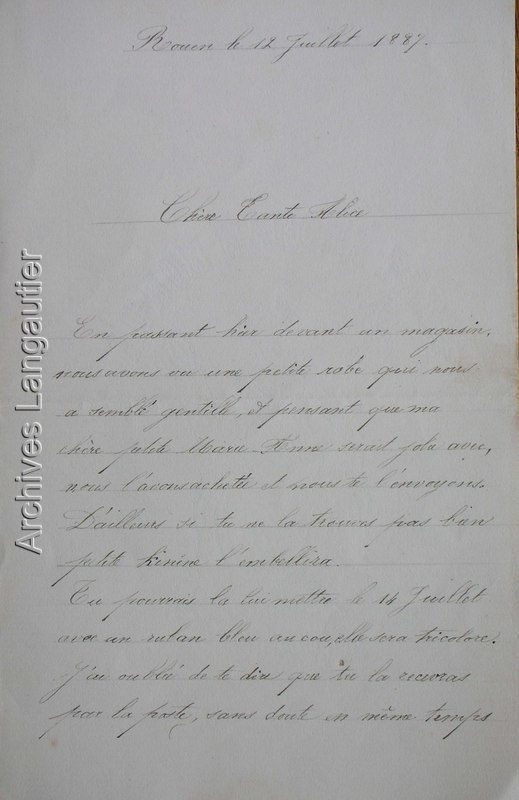 Rouen le 12 Juillet 1887.
Chère Tante Alice
En passant hier devant un magasin,
nous avons vu une petite robe qui nous
a semblé gentille, et pensant que ma
chère petite Marie Anne serait jolie avec,
nous l'avons achetée et nous te l'envoyons.
D'ailleurs si tu ne la trouves pas bien
petite l'embellira.
Tu pourrais la lui mettre le 14 Juillet
avec un ruban bleu au cou, elle sera tricolore.
J'ai oublié de te dire que tu la recevras
par la poste, sans doute en même temps
Archives Langautier